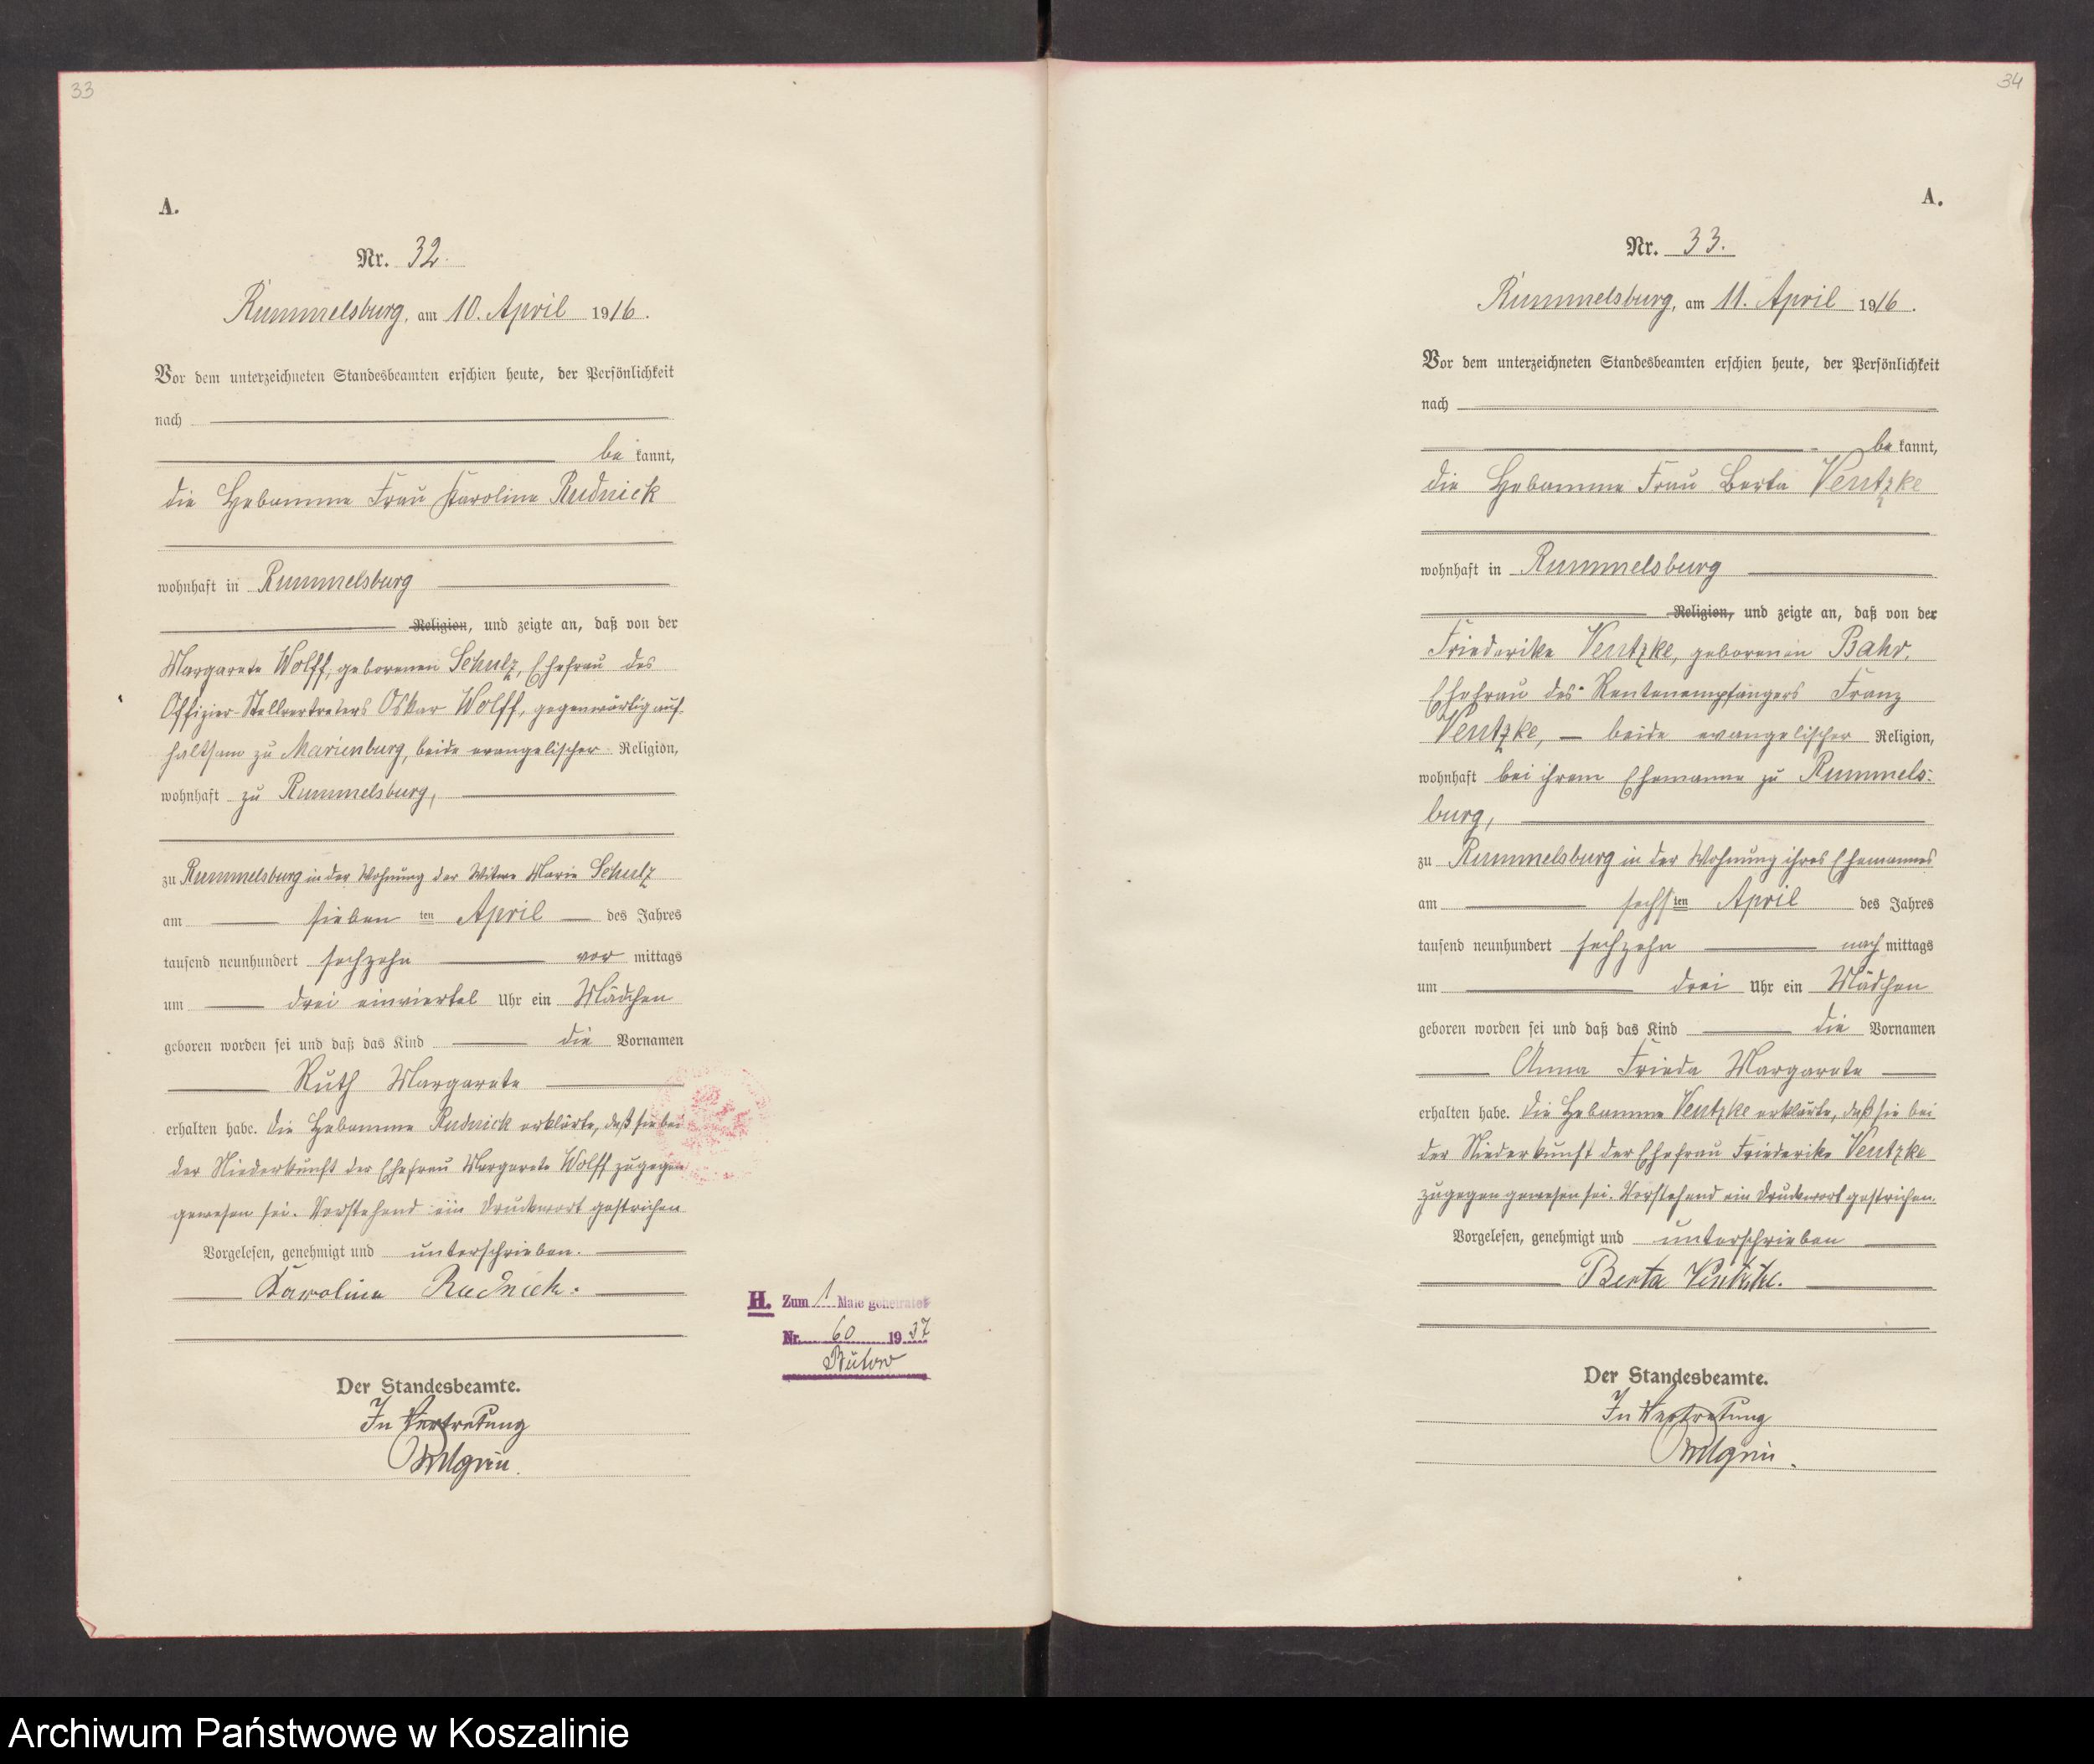 33
A.
Nr. 32.
Rummelsburg, am 10. April 1916.
Vor dem unterzeichneten Standesbeamten erschien heute, der Persönlichkeit
nach
be kannt,
die Hebamme Frau Karoline Rudnick
wohnhaft in Rummelsburg
Religion, und zeigte an, daß von der
Margarete Wolff, geborenen Schulz, Ehefrau des
Offizier-Stellvertreters Oskar Wolff, gegenwärtig auf-
haltsam zu Marienburg, beide evangelischer Religion,
wohnhaft zu Rummelsburg,
zu Rummelsburg in der Wohnung der Witwe Marie Schulz
am sieben ten April des Jahres
tausend neunhundert sechzehn vor mittags
um drei einviertel Uhr ein Mädchen
geboren worden sei und daß das Kind die Vornamen
Ruth Margarete
erhalten habe. Die Hebamme Rudnick erklärte, daß sie bei
der Niederkunft der Ehefrau Margarete Wolff zugegen
gewesen sei. Vorstehend ein Druckwort gestrichen
Vorgelesen, genehmigt und unterschrieben.
Karoline Rudnick.
Der Standesbeamte.
In Vertretung
H. Zum 1 Male geheiratet
Nr. 60 1937
Bütow
34
A.
Nr. 33.
Rummelsburg, am 11. April 1916.
Vor dem unterzeichneten Standesbeamten erschien heute, der Persönlichkeit
nach
be kannt,
die Hebamme Frau Berta Ventzke
wohnhaft in Rummelsburg
Religion, und zeigte an, daß von der
Friederike Ventzke, geborenen Bahr,
Ehefrau des Rentenempfängers Franz
Ventzke, — beide evangelischer Religion,
wohnhaft bei ihrem Ehemanne zu Rummels-
burg,
zu Rummelsburg in der Wohnung ihres Ehemannes
am sechs ten April des Jahres
tausend neunhundert sechzehn nach mittags
um drei Uhr ein Mädchen
geboren worden sei und daß das Kind die Vornamen
Anna Frieda Margarete
erhalten habe. Die Hebamme Ventzke erklärte, daß sie bei
der Niederkunft der Ehefrau Friederike Ventzke
zugegen gewesen sei. Vorstehend ein Druckwort gestrichen.
Vorgelesen, genehmigt und unterschrieben
Berta Ventzke.
Der Standesbeamte.
In Vertretung
Archiwum Państwowe w Koszalinie